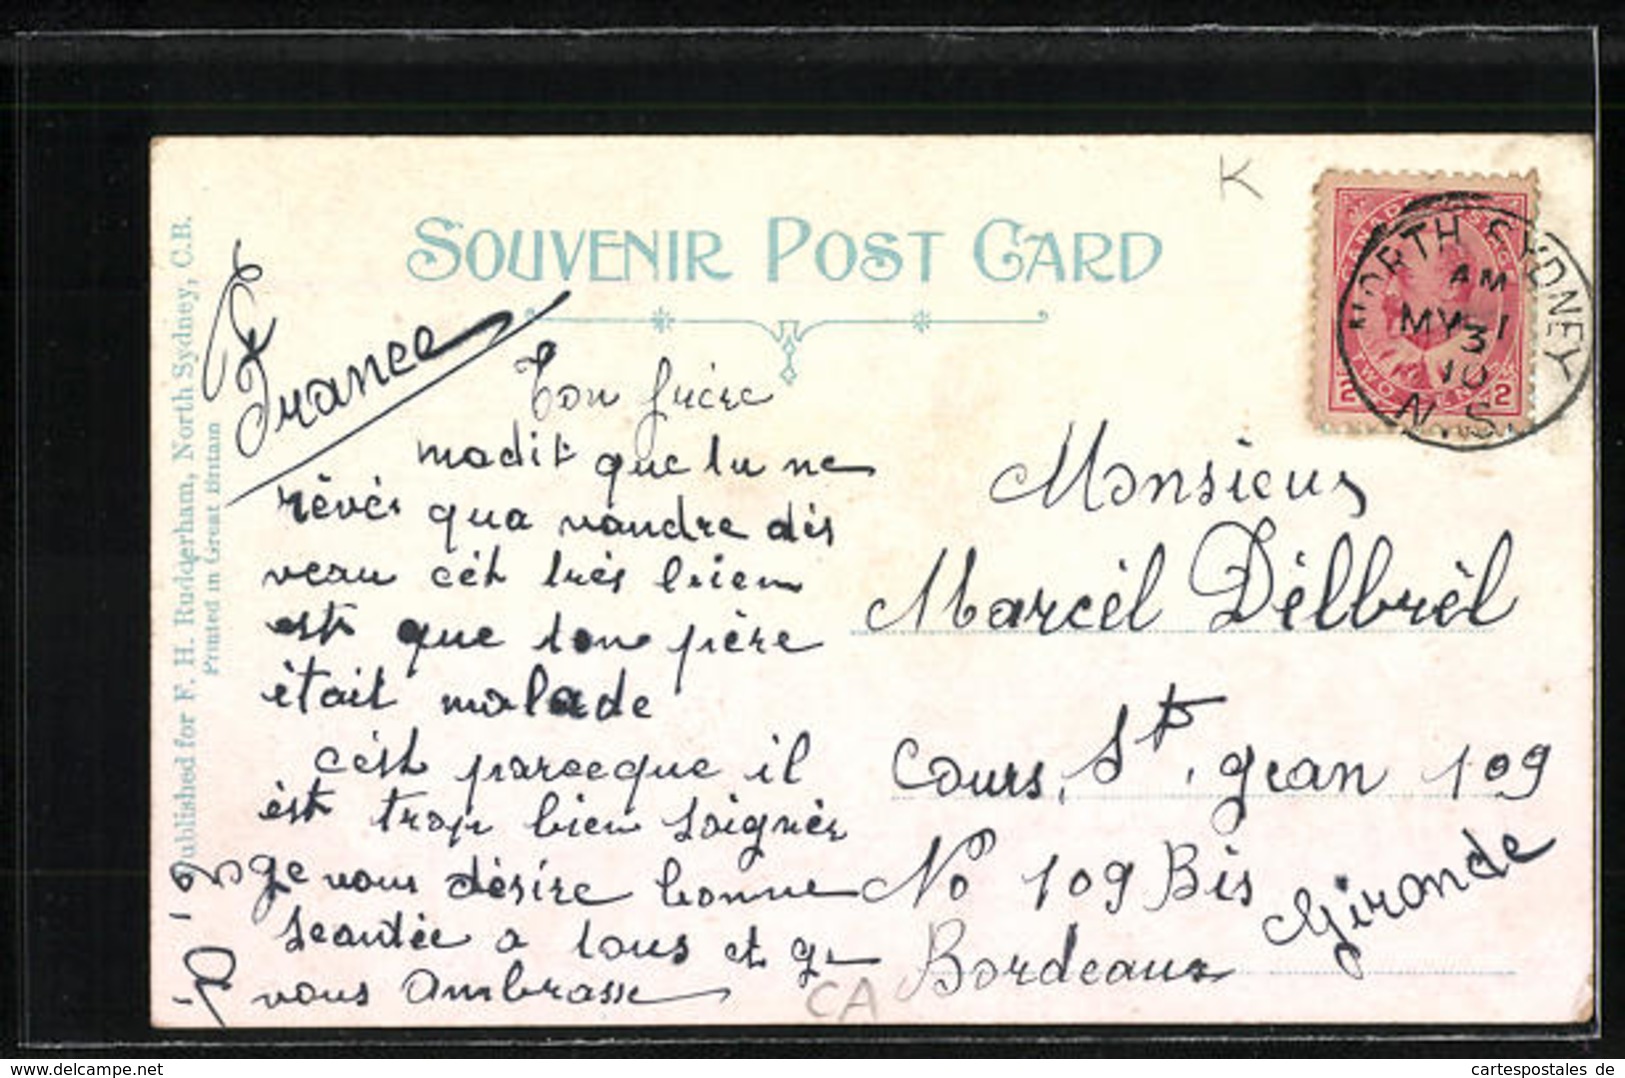 SOUVENIR POST CARD
K
CANADA POSTAGE
TWO CENTS
2 2
NORTH SYDNEY
AM
MY 31
10
N.S.
Published for F. H. Rudderham, North Sydney, C.B.
Printed in Great Britain
France
Ton frère
madit que tu ne
rêvés qua vandre dis
veau cét très bien
est que ton père
était malade
cést parceque il
ést trop bien soignér
ge vous désire bonne
seantée a tous et ge
vous Ambrasse
Monsieur
Marcél Délbrél
Cours, St, gean 109
No 109 Bis
Bordeaux
Gironde
CA
cartespostales de